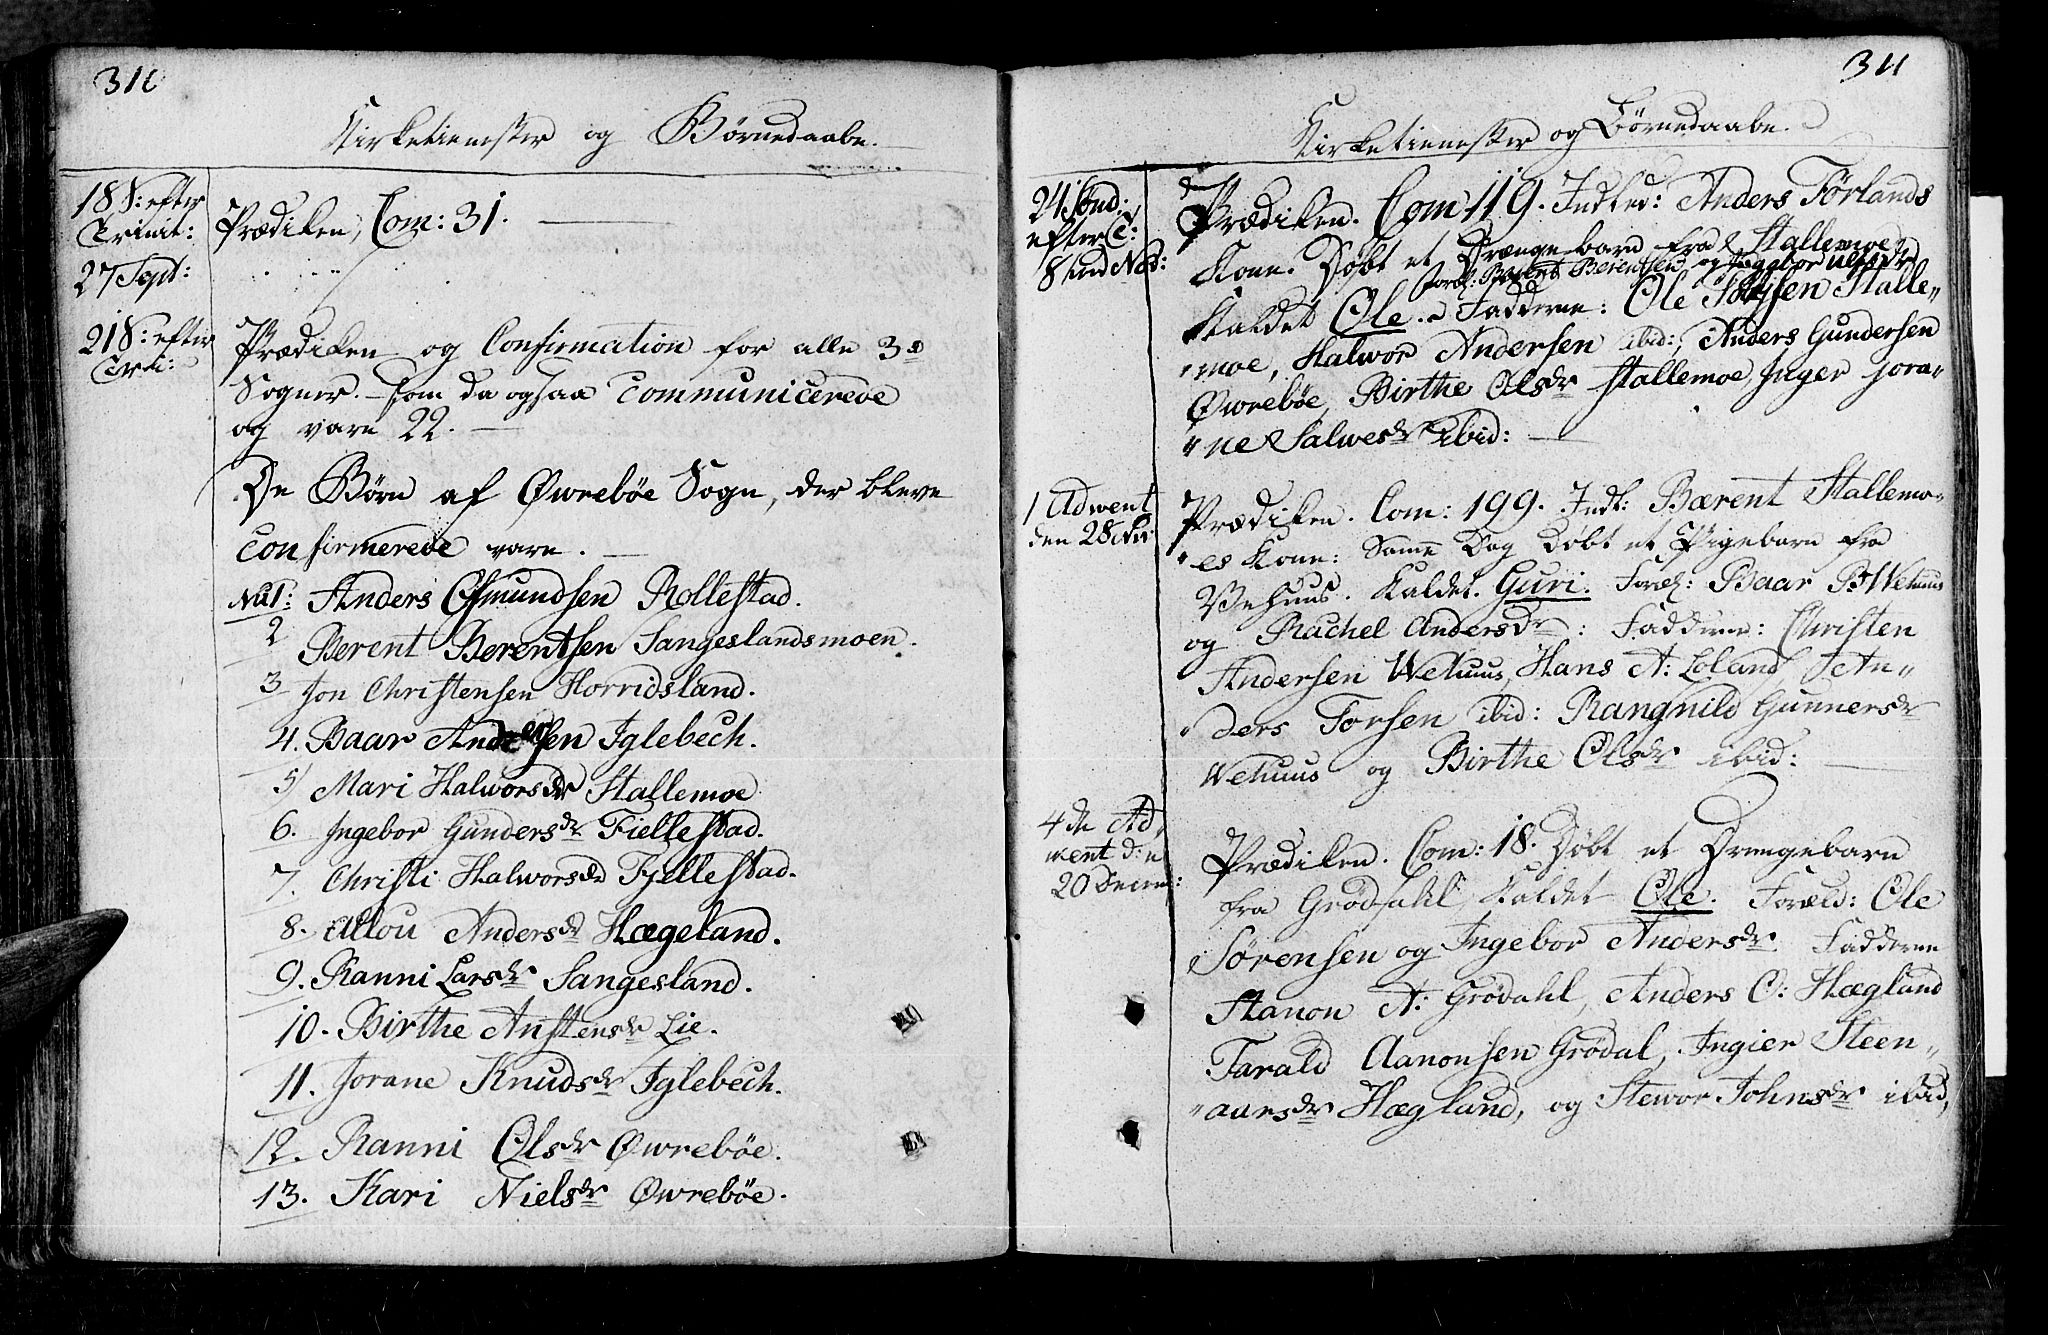 310
Kirketienester og Børnedaabe.
18 S: efter
Trinit:
27 Sept:
Prædiken, Com: 31.
21 S: efter
Tri:
Prædiken og Confirmation for alle 3de
Sogner. som da ogsaa communicerede
og vare 22.
De Børn af Øwrebøe Sogn, der bleve
confirmerede vare.
No 1: Anders Osmundsen Rollestad.
2 Berent Berentsen Sangeslandsmoen.
3 Jon Christensen Horridsland.
4. Baar Andersen Iglebech.
5 Mari Halworsdr Stallemoe
6. Ingebor Gundersdr Fiellestad.
7. Christi Halworsdr Fjellestad.
8. Allou Andersdr Hægeland.
9. Ranni Larsdr Sangesland.
10. Birthe Anstensdr Lie.
11. Jorane Knudsdr Iglebech.
12. Ranni Olsdr Øwrebøe.
13. Kari Nielsdr Øwrebøe.
311
Kirketienester og Børnedaabe.
24 Sønd:
efter T:
8
Prædiken. Com 119. Indled: Anders Förlands
Kone. Døbt et Drengebarn fra Stallemoe
Foræl: Berent Berentsen og Ingebor Nilsdr
kaldet Ole. Fadderne: Ole Stalle„
„moe, Halwor Andersen ibid:, Anders Gundersen
Øwrebøe, Birthe Olsdr Stallemoe, Inger Jora„
„ne Salwesdr ibid:
1 Adwent
den 28
Prædiken. Com: 199. Indl: Bærent Stallemo„
„es Kone: Samme Dag døbt et Pigebarn fra
Wehuus. kaldet Guri. Foræl: Baar B: Wehuus
og Rachel Andersdr: Fadderne: Christen
Andersen Wehuus, Hans A: Loland, An„
„ders Torsen ibid: Rangnild Gunnersdr
Wehuus og Birthe Olsdr ibid:
4de Ad
went den
20 Decem:
Prædiken. Com: 18. Døbt et Drengebarn
fra Grödsahl, kaldet Ole. Foræld: Ole
Sörensen og Ingebor Andersdr. Fadderne
Aanon A: Grödahl, Anders O: Hægland
Tarald Aanonsen Grödal, Ingier Steen„
„auersdr Hægland, og Stewor Johnsdr ibid,